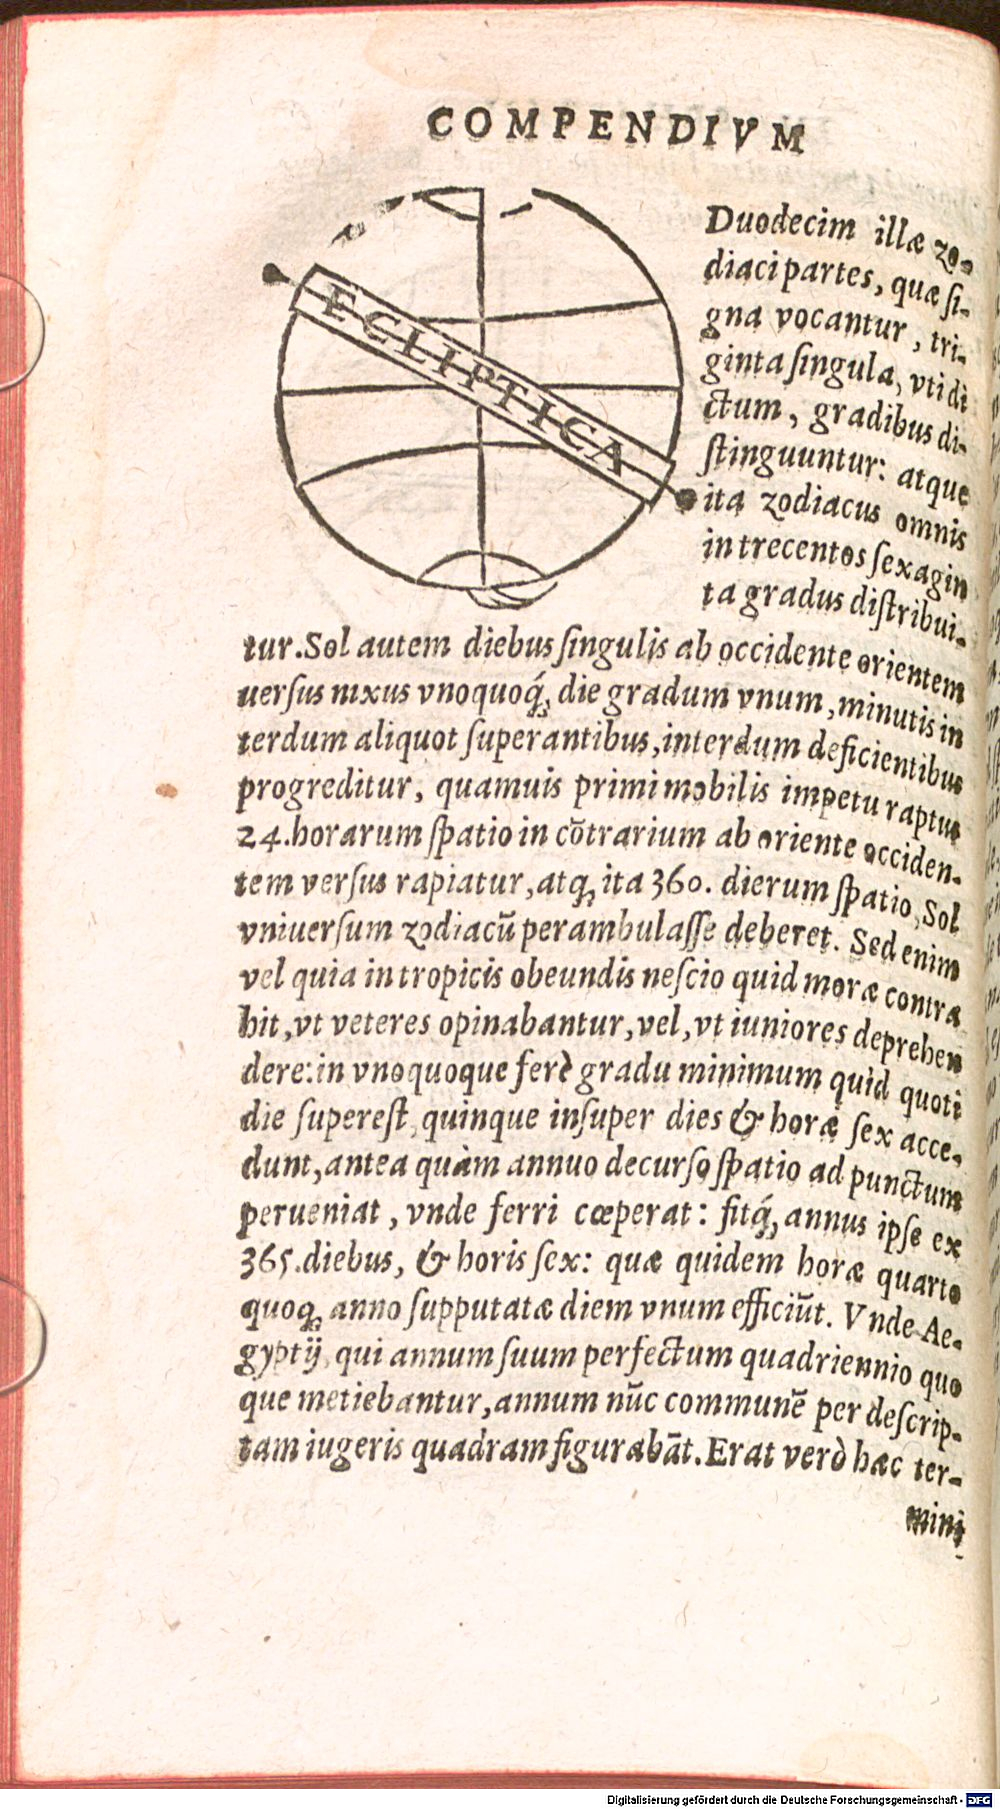 COMPENDIVM
ECLIPTICA
Duodecim illæ zo-
diaci partes, quæ ſi-
gna vocantur, tri-
ginta ſingula, vti di
ctum, gradibus di-
ſtinguuntur: atque
ita zodiacus omnis
in trecentos ſexagin
ta gradus diſtribui-
tur. Sol autem diebus ſingulis ab occidente orientem
uerſus nixus vnoquoq́; die gradum vnum, minutis in
terdum aliquot ſuperantibus, interdum deficientibus
progreditur, quamuis primi mobilis impetu raptus
24. horarum ſpatio in cōtrarium ab oriente occiden-
tem verſus rapiatur, atq; ita 360. dierum ſpatio, Sol
vniuerſum zodiacū perambulaſſe deberet. Sed enim
vel quia in tropicis obeundis neſcio quid moræ contra
hit, vt veteres opinabantur, vel, vt iuniores deprehen
dere: in vnoquoque ferè gradu minimum quid quoti
die ſupereſt, quinque inſuper dies & horæ ſex acce-
dunt, antea quàm annuo decurſo ſpatio ad punctum
perueniat, vnde ferri cœperat: fitq́; annus ipſe ex
365. diebus, & horis ſex: quæ quidem horæ quarto
quoq; anno ſupputatæ diem vnum efficiūt. Vnde Ae-
gyptij, qui annum ſuum perfectum quadriennio quo
que metiebantur, annum nūc communē per deſcrip-
tam iugeris quadram figurabāt. Erat verò hæc ter-
mini
Digitalisierung gefördert durch die Deutsche Forschungsgemeinschaft - DFG